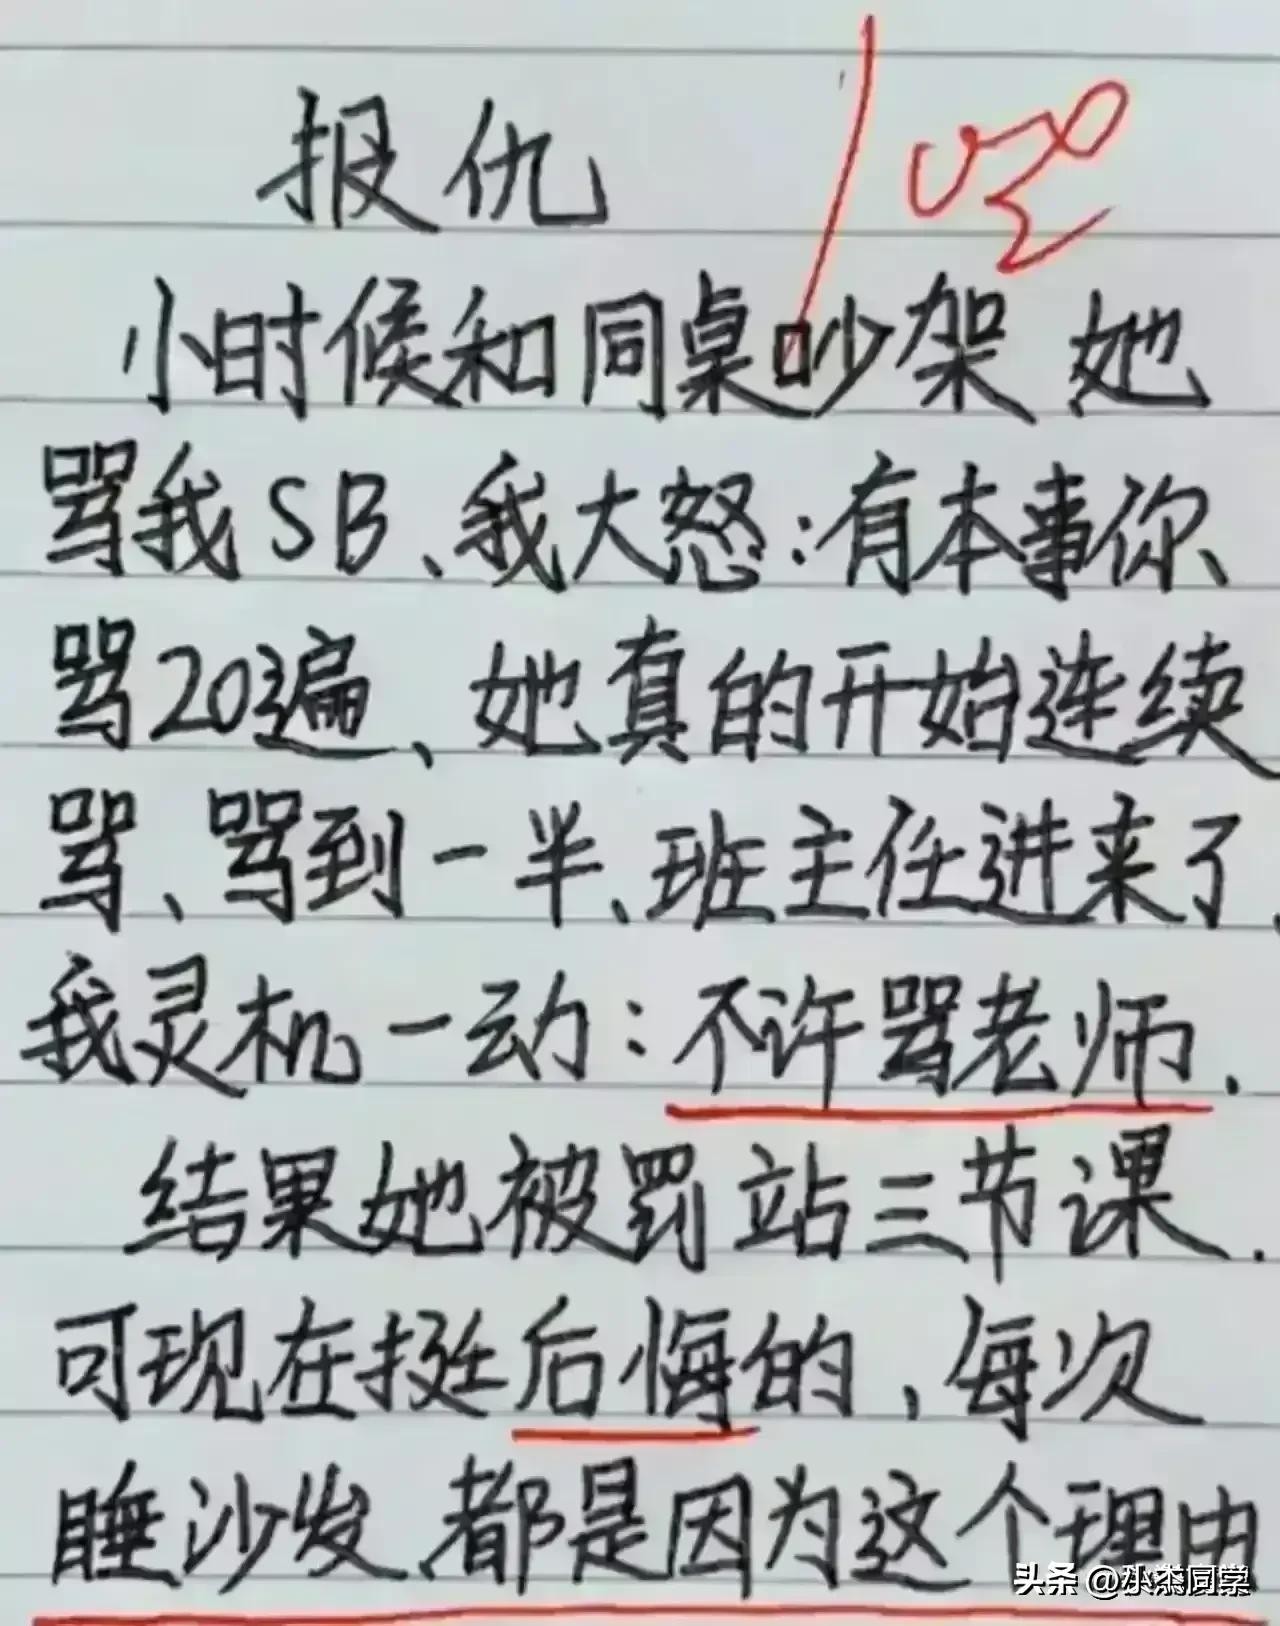 报仇
小时候和同桌吵架 她
骂我SB、我大怒:有本事你、
骂20遍、她真的开始连续
骂、骂到一半、班主任进来了、
我灵机一动:不许骂老师.
结果她被罚站三节课.
可现在挺后悔的,每次
睡沙发、都是因为这个理由
头条 @